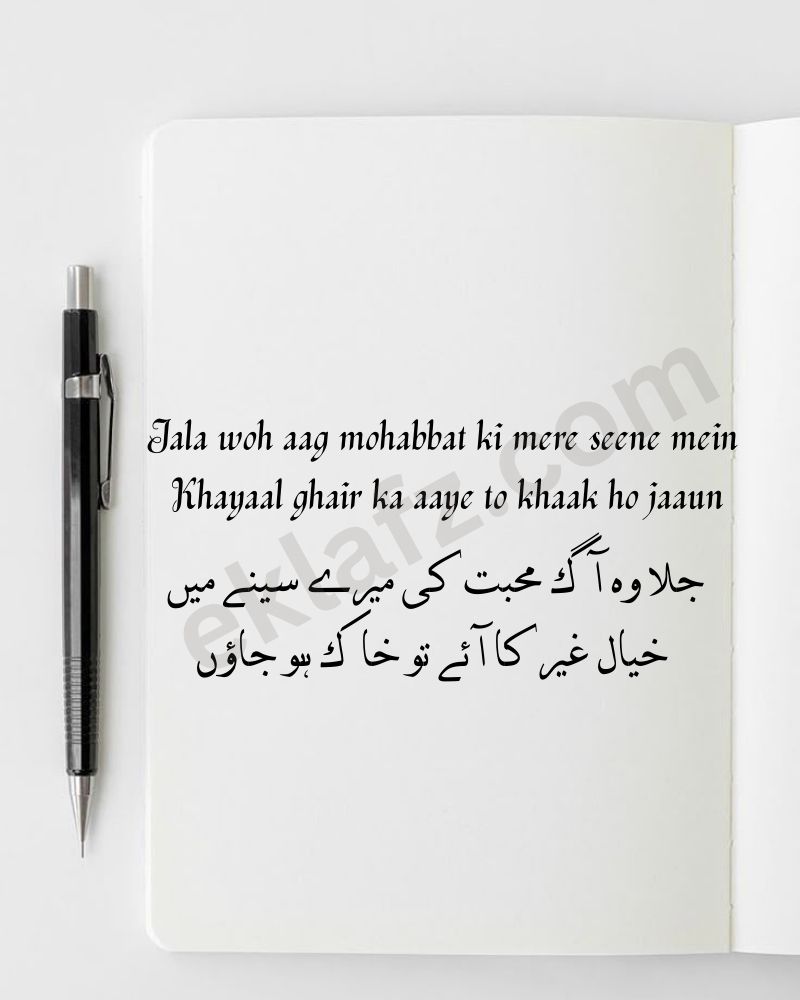 Jala woh aag mohabbat ki mere seene mein
Khayaal ghair ka aaye to khaak ho jaaun
جلا وہ آگ محبت کی میرے سینے میں
خیال غیر کا آئے تو خاک ہو جاؤں
eklafz.com